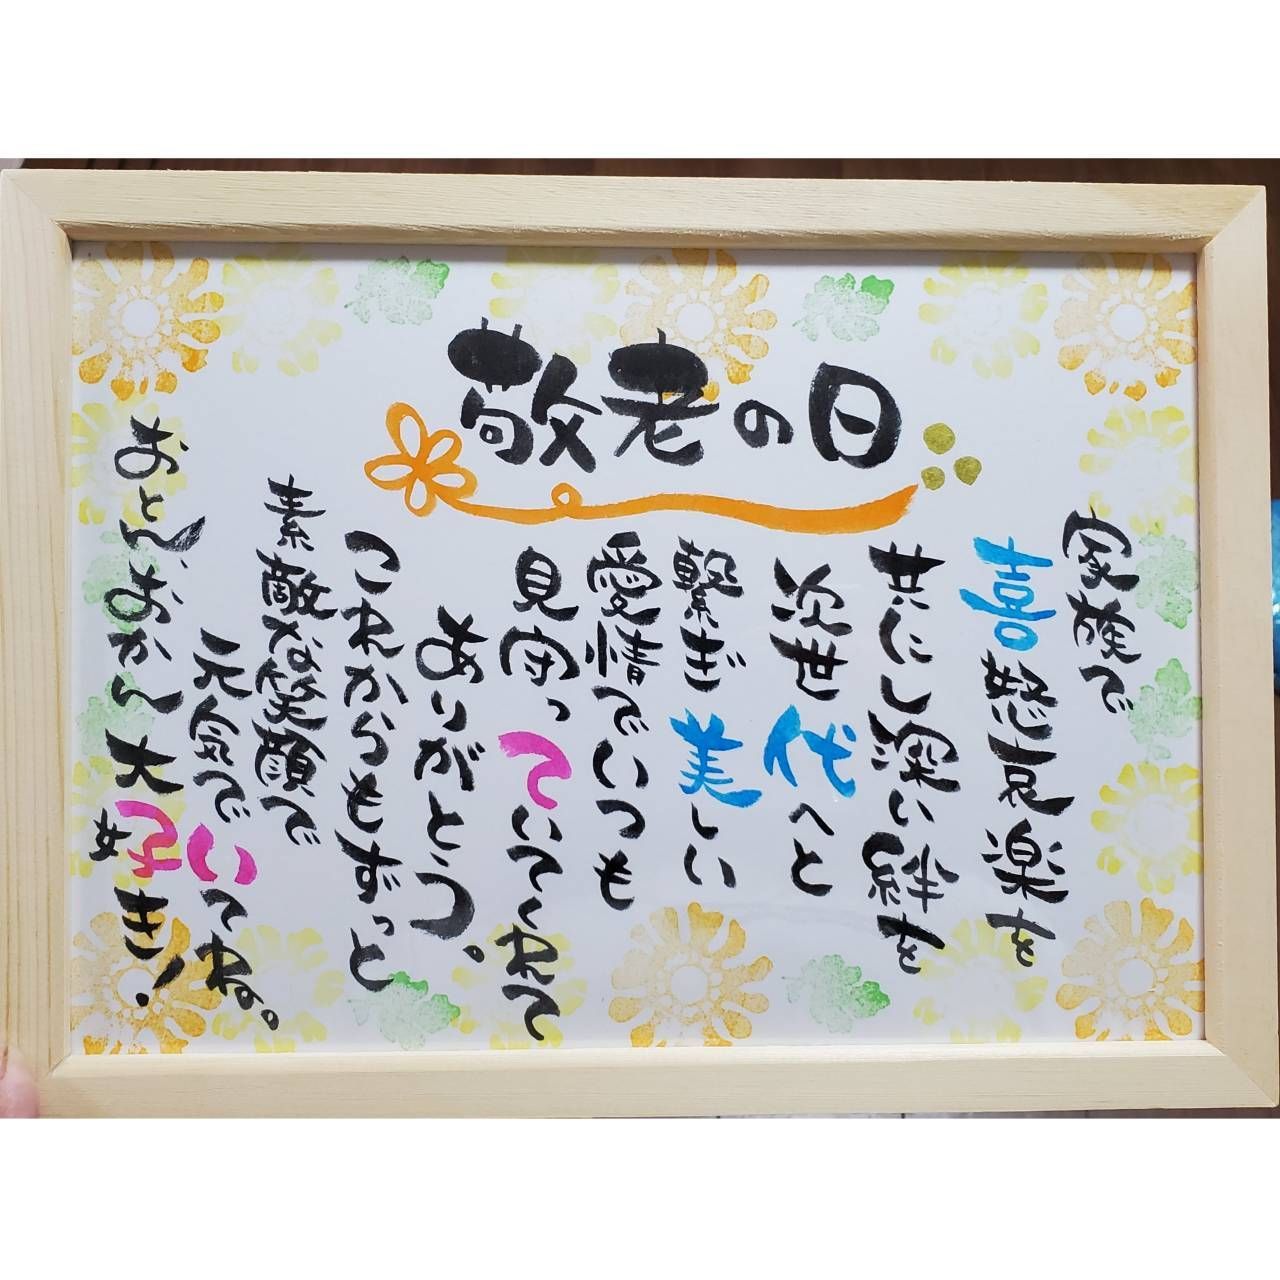 敬老の日
家族で
喜怒哀楽を
共にし深い絆を
次世代へと
繋ぎ美しい
愛情でいつも
見守っていてくれて
ありがとう。
これからもずっと
素敵な笑顔で
元気でいてね。
おとん、おかん大好き!